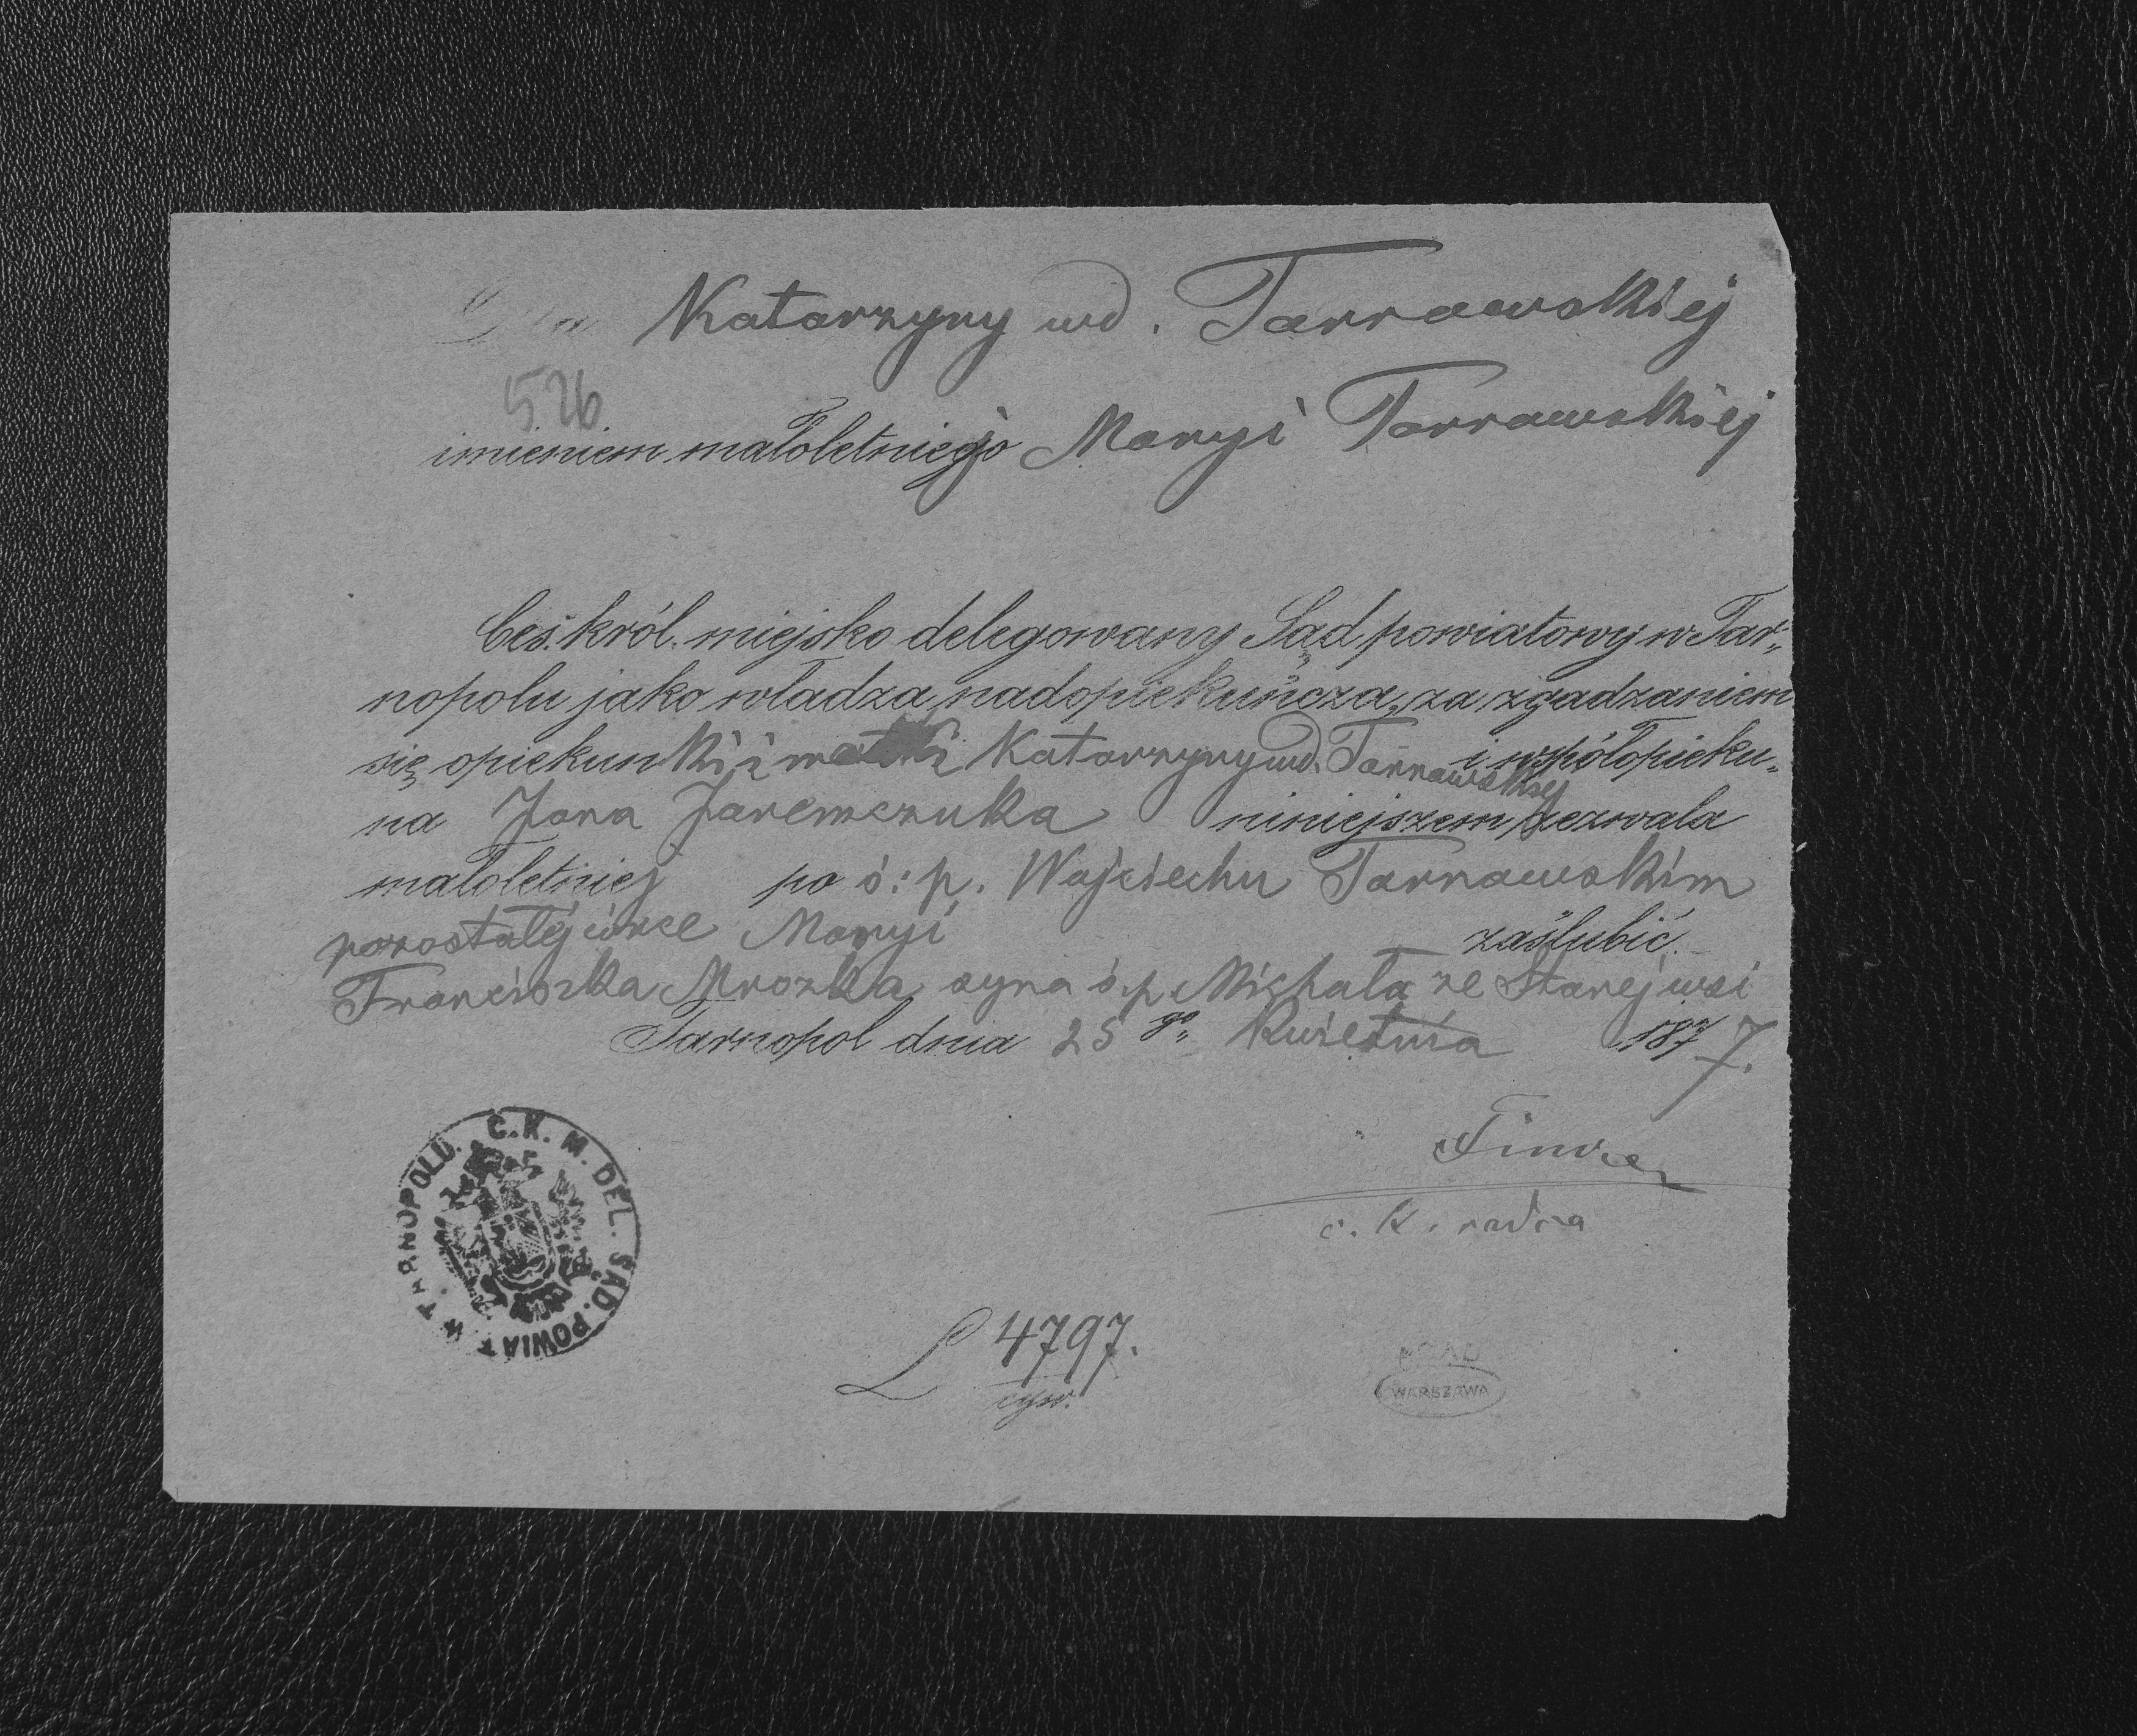 Dla Katarzyny wd. Tarnawskiej
526
imieniem małoletniej Maryi Tarnawskiej
Ces. król. miejsko delegowany Sąd powiatowy w Tar„
nopolu jako władza nadopiekuńcza, za zgadzaniem
się opiekunki i matki Katarzyny wd. Tarnawskiej i współopieku„
na Jana Jaremczuka niniejszem zezwala
małoletniej po ś: p. Wojciechu Tarnawskim
pozostałej córce Maryi zaślubić
Franciszka Mrozka syna ś. p. Michała ze Starej wsi
Tarnopol dnia 25 go„ Kwietnia 1877.
c. k. radca
C. K. M. DEL. SĄD. POWIAT. W TARNOPOLU.
L 4797.
cyw.
AGAD
WARSZAWA